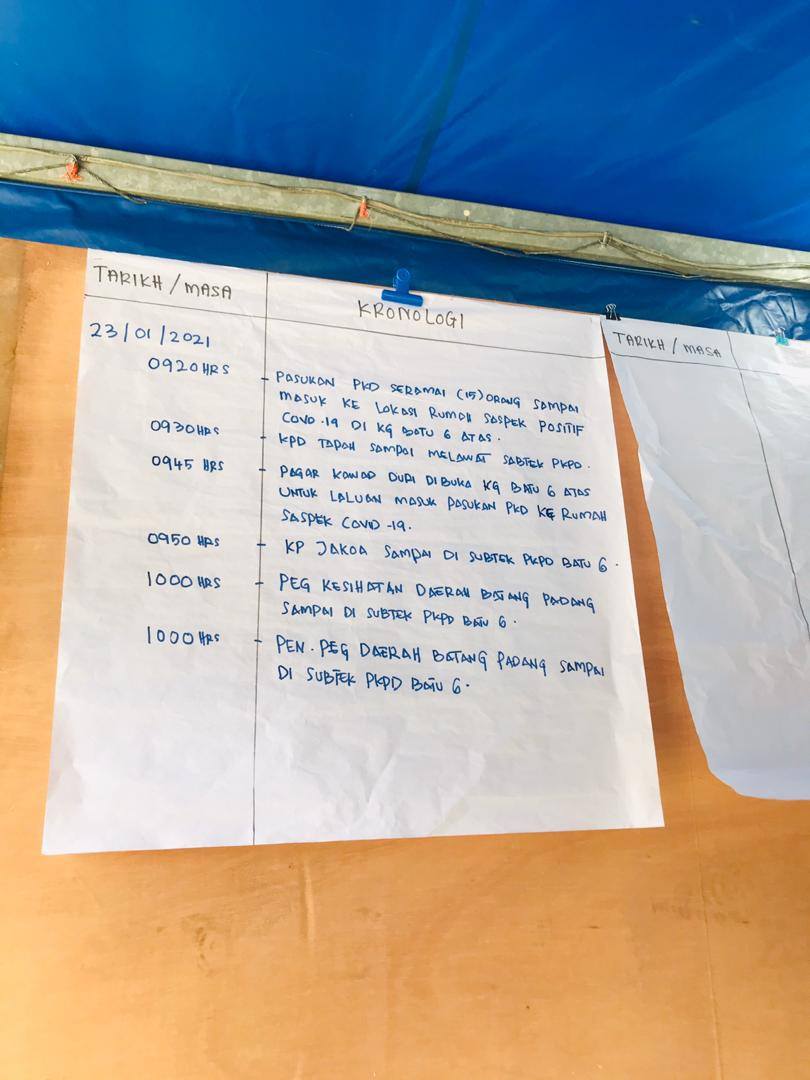 TARIKH / MASA
KRONOLOGI
23/01/2021
0920 HRS
- PASUKAN PKD SERAMAI (15) ORANG SAMPAI
MASUK KE LOKASI RUMAH SASPEK POSITIF
COVID-19 DI KG BATU 6 ATAS.
0930 HRS
- KPD TAPAH SAMPAI MELAWAT SABTEK PKPD.
0945 HRS
- PAGAR KAWAD DURI DIBUKA KG BATU 6 ATAS
UNTUK LALUAN MASUK PASUKAN PKD KE RUMAH
SASPEK COVID-19.
0950 HRS
- KP JAKOA SAMPAI DI SUBTEK PKPD BATU 6.
1000 HRS
- PEG KESIHATAN DAERAH BATANG PADANG
SAMPAI DI SUBTEK PKPD BATU 6.
1000 HRS
- PEN. PEG DAERAH BATANG PADANG SAMPAI
DI SUBTEK PKPD BATU 6.
TARIKH / MASA